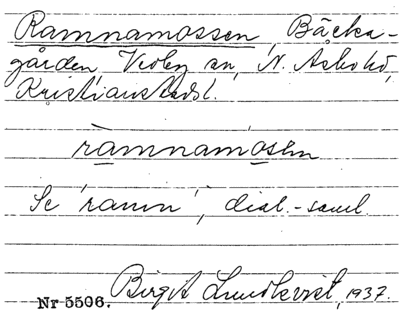 Ramnamossen, Bäcka-
gården, Visby sn, N. Åsbo hd,
Kristianstads l.
ràmnamòsən
Se 'ramn', dial.-saml.
Birgit Lundkvist, 1937.
Nr 5506.